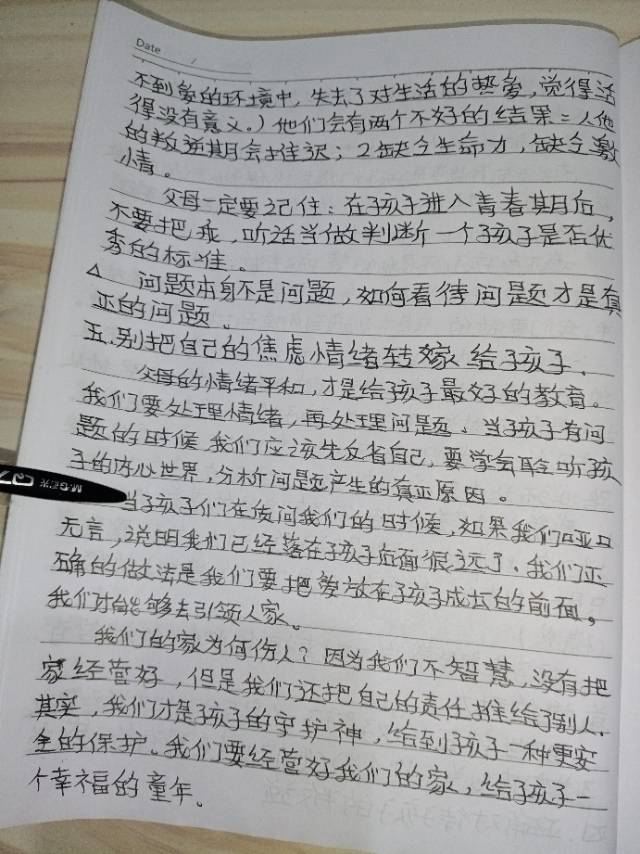 Date /
不到爱的环境中，失去了对生活的热爱，觉得活
得没有意义。）他们会有两个不好的结果：1.他
的叛逆期会推迟；2缺乏生命力，缺乏激
情。
父母一定要记住：在孩子进入青春期后，
不要把乖，听话当做判断一个孩子是否优
秀的标准。
△ 问题本身不是问题，如何看待问题才是真
正的问题。
五.别把自己的焦虑情绪转嫁给孩子.
父母的情绪平和，才是给孩子最好的教育。
我们要处理情绪，再处理问题。当孩子有问
题的时候，我们应该先反省自己，要学会聆听孩
子的内心世界，分析问题产生的真正原因。
当孩子们在质问我们的时候，如果我们哑口
无言，说明我们已经落在孩子后面很远了.我们正
确的做法是我们要把爱放在孩子成长的前面，
我们才能够去引领人家。
我们的家为何伤人？因为我们不智慧，没有把
家经营好，但是我们还把自己的责任推给了别人.
其实，我们才是孩子的守护神，给到孩子一种更安
全的保护。我们要经营好我们的家，给孩子一
个幸福的童年。
M&G晨光